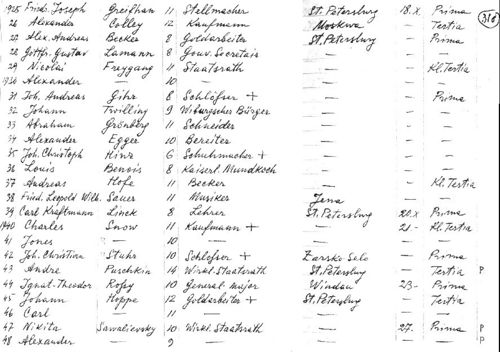 1925 Fried. Joseph Greifhan 11 Stellmacher St. Petersburg 18.X Prima 316
26 Alexander Colley 12 Kaufmann Moskwa – Tertia
27 Alex. Andreas Becker 8 Goldarbeiter St. Petersburg – Prima
28 Gottfr. Gustav Lamann 8 Gouv. Secretair – – –
29 Nicolai Freygang 11 Staatsrath – – Kl. Tertia
1930 Alexander — 10 — – – –
31 Joh. Andreas Gihr 8 Schlösser + – – Prima
32 Johann Trölling 9 Wiburgscher Bürger – – –
33 Abraham Grönberg 11 Schneider – – –
34 Alexander Egger 10 Bereiter – – –
35 Joh. Christoph Hinz 6 Schuhmacher + – – –
36 Louis Benois 8 Kaiserl. Mundkoch – – –
37 Andreas Hofe 11 Becker – – Kl. Tertia
38 Fried. Leopold Wilh. Sauer 11 Musiker Jena – –
39 Carl Kraftmann Linck 8 Lehrer St. Petersburg 20.X Prima
1940 Charles Snow 11 Kaufmann + – 21 – Kl. Tertia
41 Jones — 10 — – – –
42 Joh. Christian Stuhr 10 Schlosser + Zarsko Selo – Prima
43 Andre Puschkin 14 Wirkl. Staatsrath St. Petersburg – Tertia P
44 Ignat. Theodor 10 General major Windau 23 – Prima
45 Johann Hoppe 12 Goldarbeiter + St. Petersburg – Tertia
46 Carl — 11 — – – –
47 Nikita Sawalievsky 10 Wirkl. Staatsrath – 27. Prima P
48 Alexander — 9 — – – – P